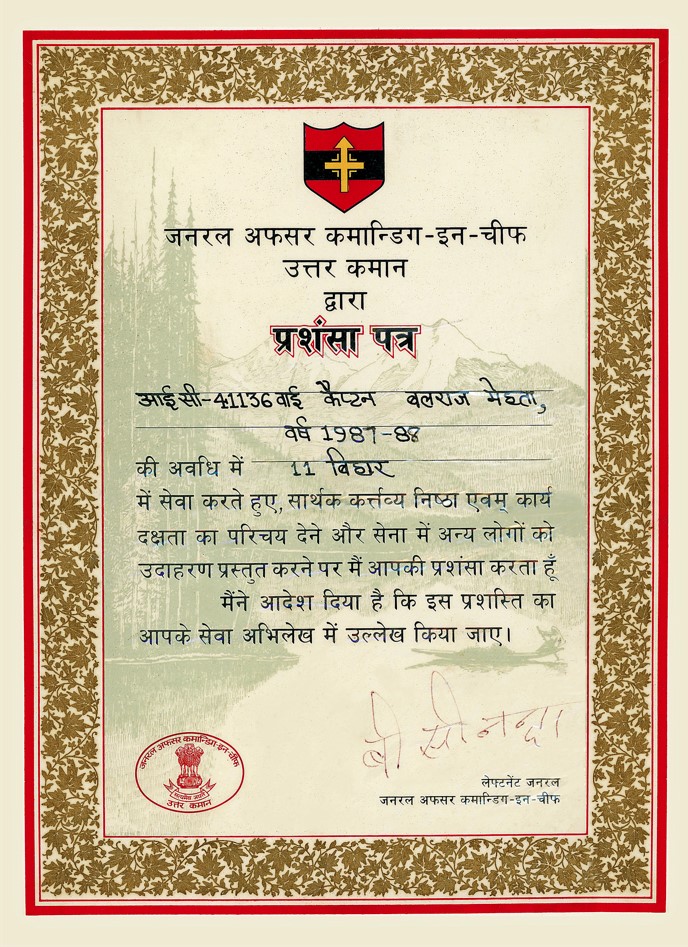 जनरल अफसर कमान्डिग-इन-चीफ
उत्तर कमान
द्वारा
प्रशंसा पत्र
आई सी-41136 वाई कैप्टन बलराज मेहता,
वर्ष 1987-88
की अवधि में 11 बिहार
में सेवा करते हुए, सार्थक कर्त्तव्य निष्ठा एवम् कार्य
दक्षता का परिचय देने और सेना में अन्य लोगों को
उदाहरण प्रस्तुत करने पर मैं आपकी प्रशंसा करता हूँ
मैंने आदेश दिया है कि इस प्रशस्ति का
आपके सेवा अभिलेख में उल्लेख किया जाए।
बी सी नन्दा
लेफ्टनेंट जनरल
जनरल अफसर कमान्डिग-इन-चीफ
जनरल अफसर कमान्डिग-इन-चीफ
सत्यमेव जयते
उत्तर कमान